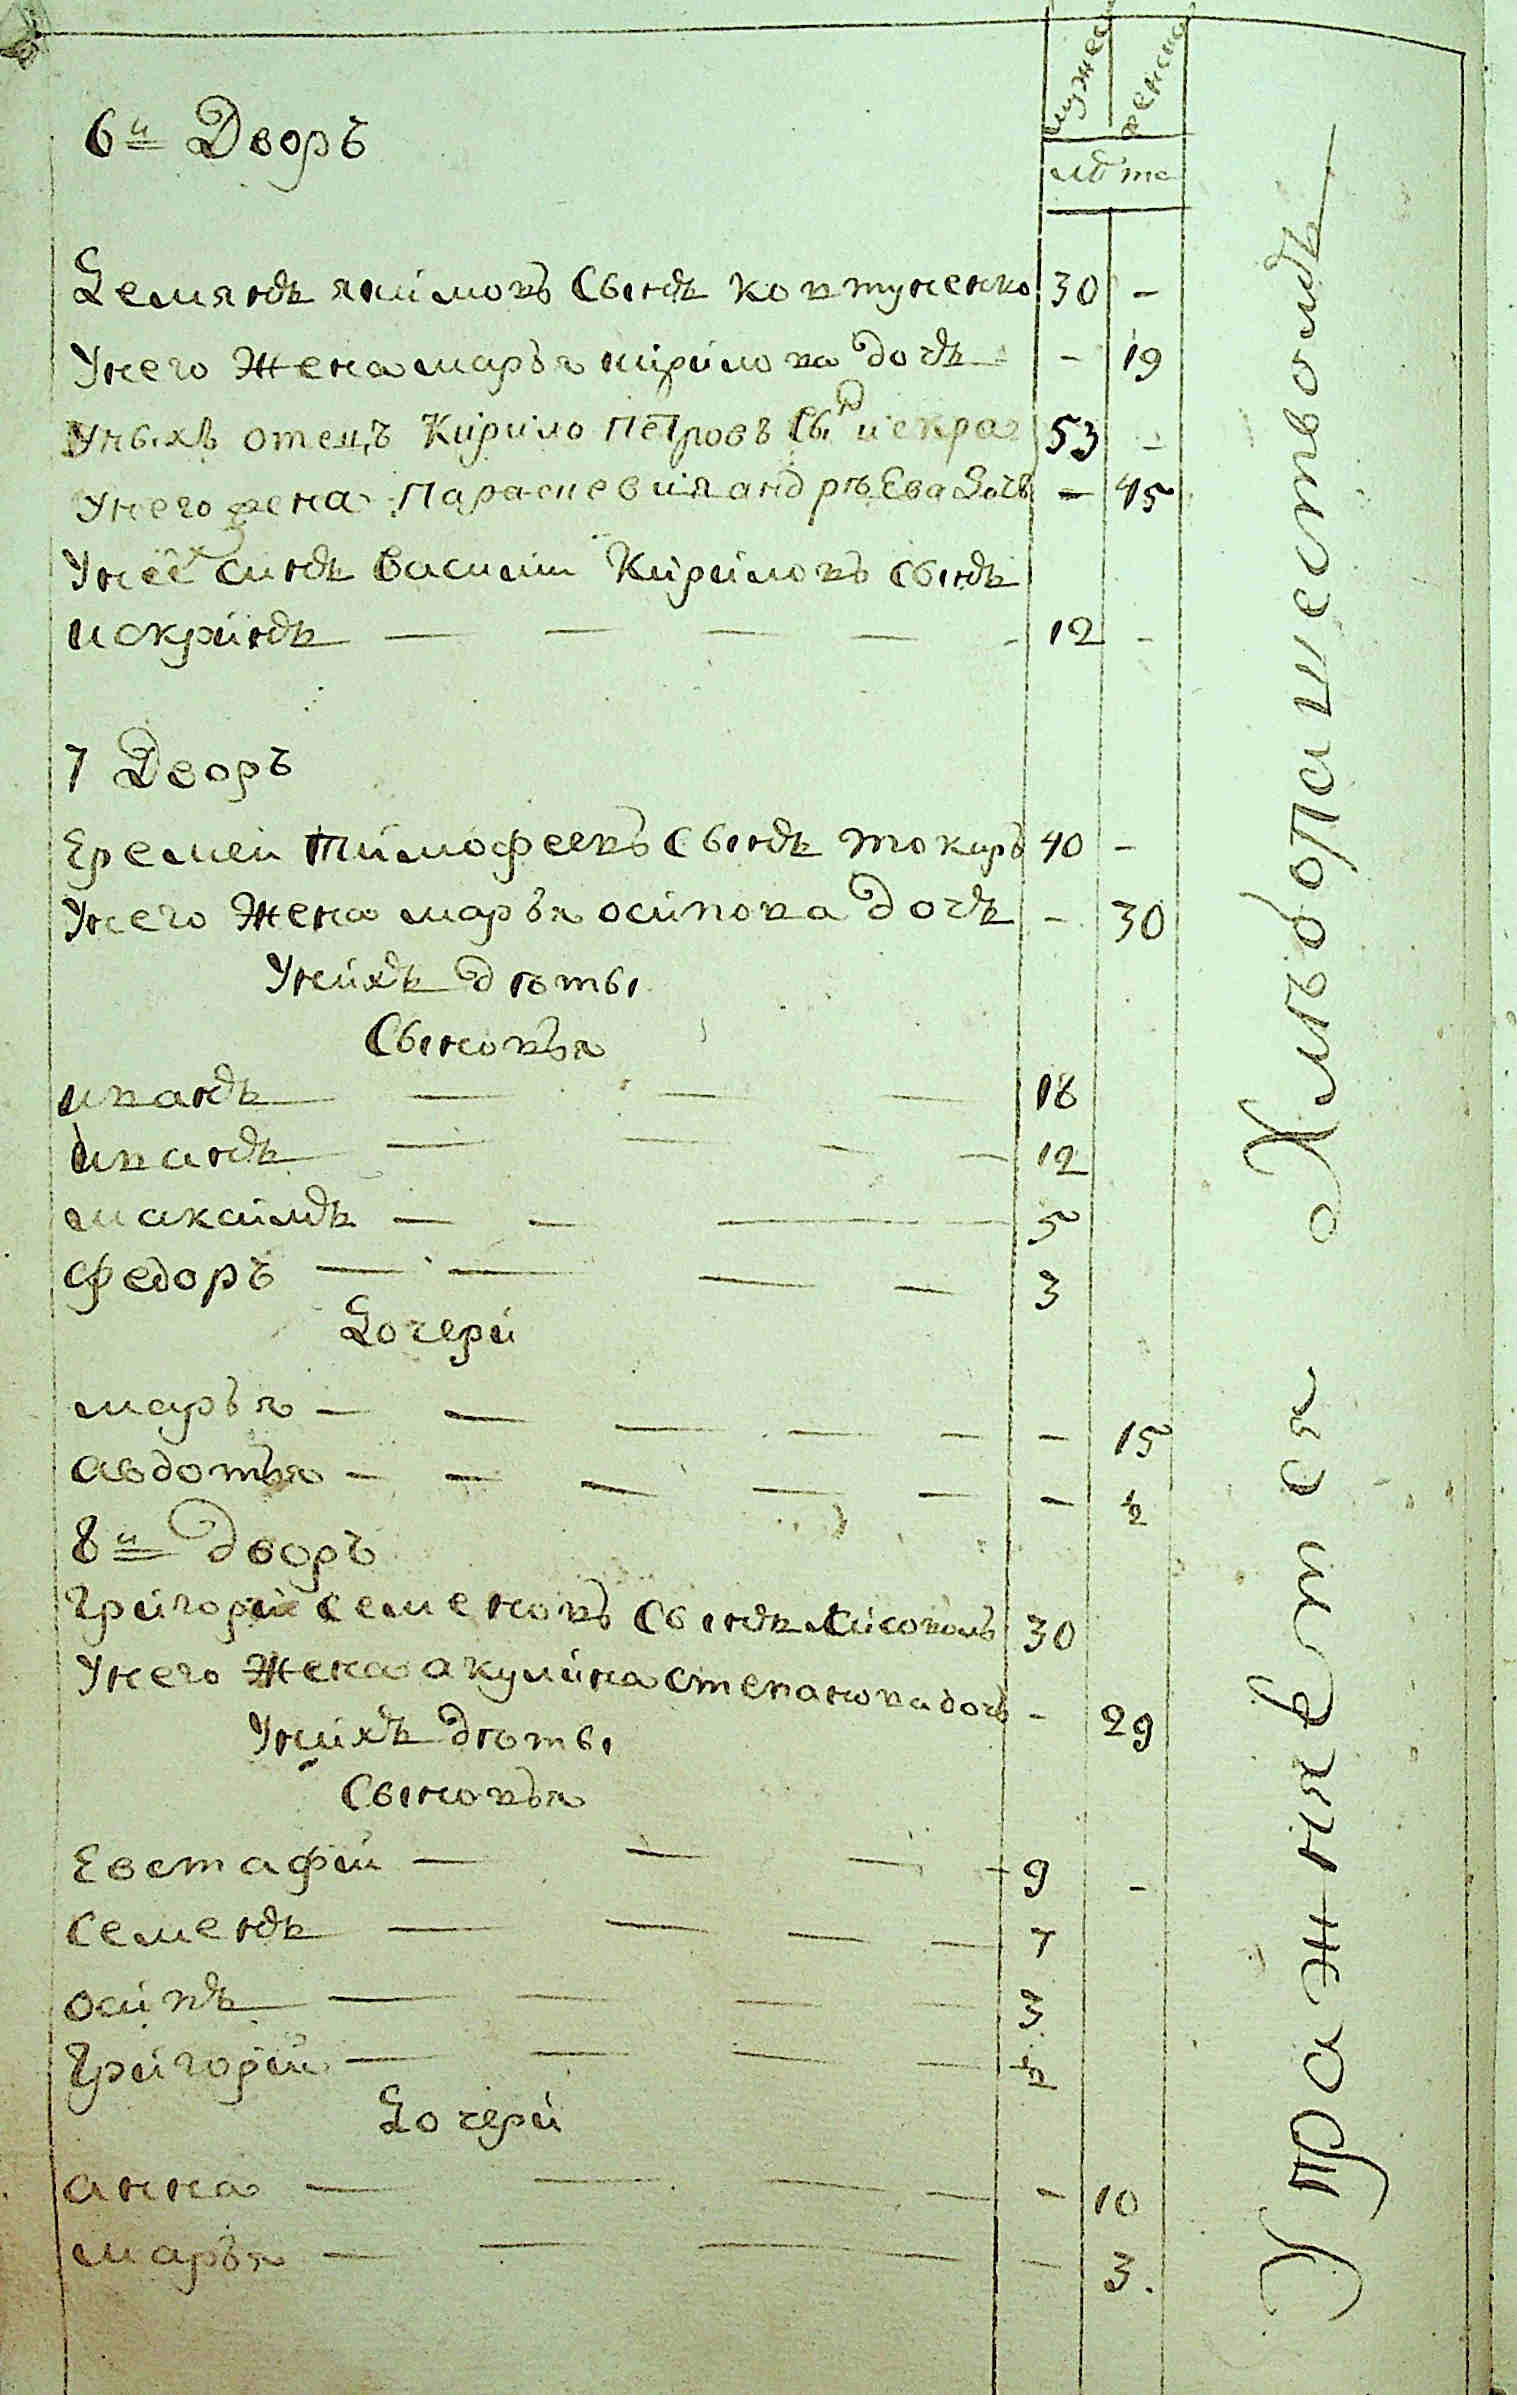 мужес женска
лѣта
6й Дворъ
Демянъ якимовъ Сынъ ковтуненко 30 -
Унего жена марья кирилова дочь - 19
Уныхъ отецъ Кирило Петровъ Сынъ искра 53 -
Унего жена Параскевия андрѣева дочь - 45
Унеё синъ василий Кириловъ сынъ
искринъ 12 -
7 Дворъ
Еремей Тимофеевъ Сынъ токаръ 40 -
Унего жена марья осипова дочъ - 30
Унихъ дѣты
Сыновья
иванъ 18
иванъ 12
максимъ 5
Федоръ 3
Дочери
марья - 15
авдотья - ½
8й дворъ
Григорий семеновъ Сынъ
30
Унего жена акулина степанова дочъ - 29
Унихъ дѣты
Сыновья
Евстафий 9 -
Семенъ 7
осипъ 3
Григорий ½
Дочери
анна - 10
марья - 3.
Упражняется Хлѣбопашествомъ